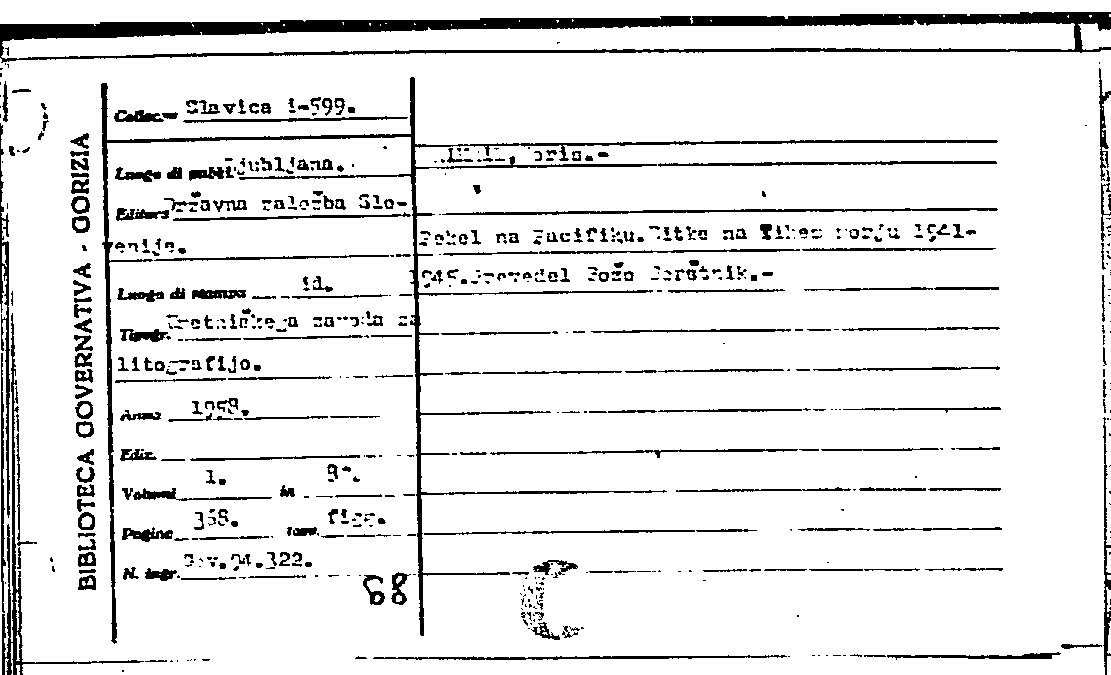 BIBLIOTECA GOVERNATIVA - GORIZIA
Colloc. Slavica i-599.
Luogo di pubbl. Ljubljana.
Editore Državna založba Slo-
venije.
Luogo di stampa id.
Tipogr. zavoda za
litografijo.
Anno 1958.
Ediz.
Volumi 1. in 8°.
Pagine 368. tavv. figg.
N. ingr. 322.
68
Boris.-
Pekel na Pacifiku. Bitke na Tihem morju 1941-
1945. Prevedel Božo Gerštnik.-